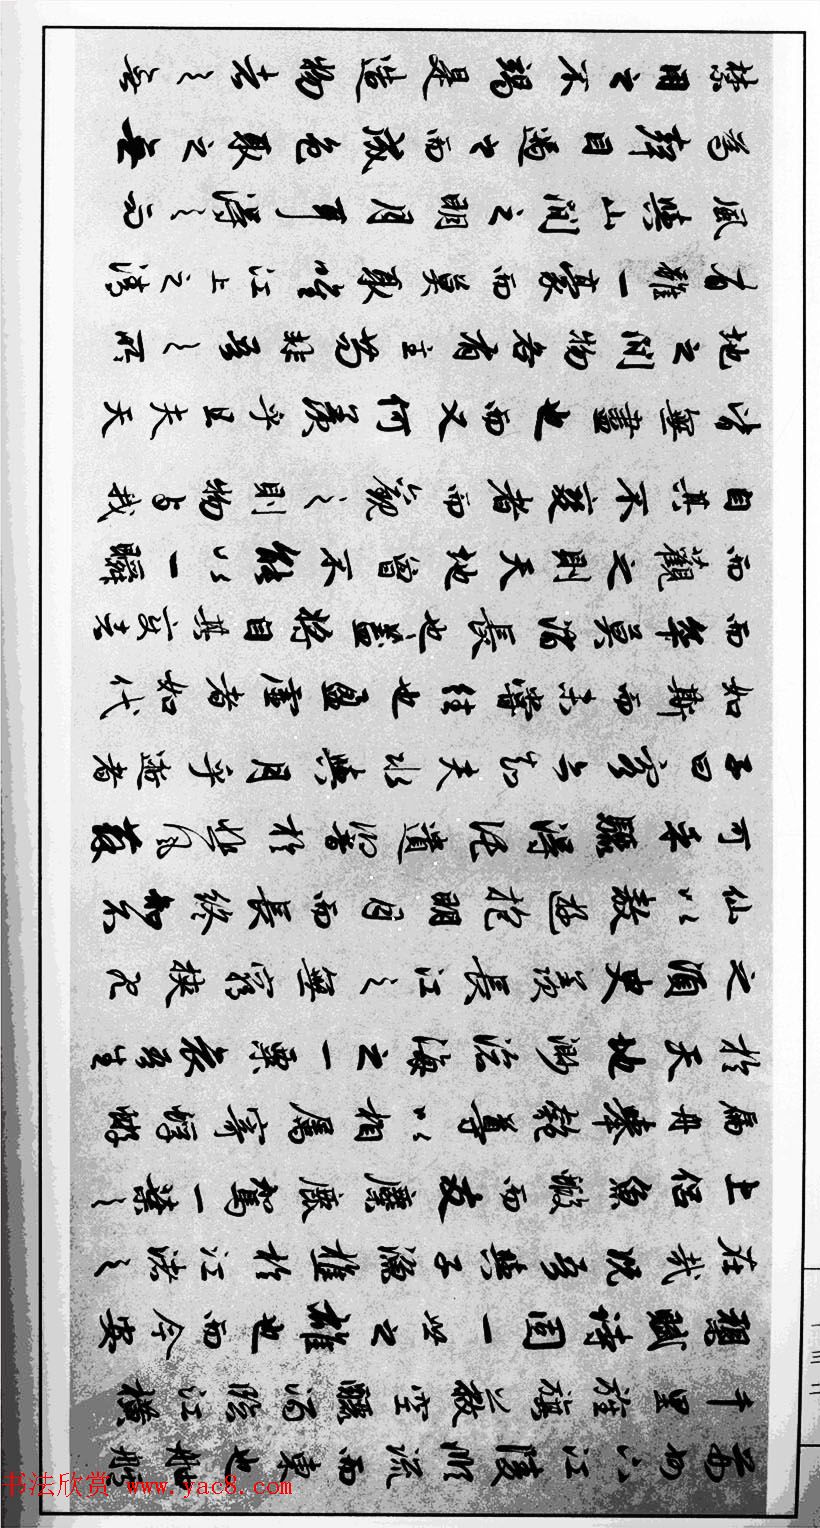 荊州下江陵順流而東也舳艫
千里旌旗蔽空釃酒臨江橫
槊賦詩固一世之雄也而今安
在哉況吾與子漁樵於江渚之
上侶魚蝦而友麋鹿駕一葉之
扁舟舉匏尊以相屬寄蜉蝣
於天地渺滄海之一粟哀吾生
之須臾羨長江之無窮挾飛
仙以遨遊抱明月而長終知不
可乎驟得託遺響於悲風蘇
子曰客亦知夫水與月乎逝者
如斯而未嘗往也盈虛者如代
而卒莫消長也蓋將自其變者
而觀之則天地曾不能以一瞬
自其不變者而觀之則物與我
皆無盡也而又何羨乎且夫天
地之間物各有主苟非吾之所
有雖一毫而莫取惟江上之清
風與山間之明月耳得之而
爲聲目遇之而成色取之無
禁用之不竭是造物者之無
书法欣赏 www.yac8.com